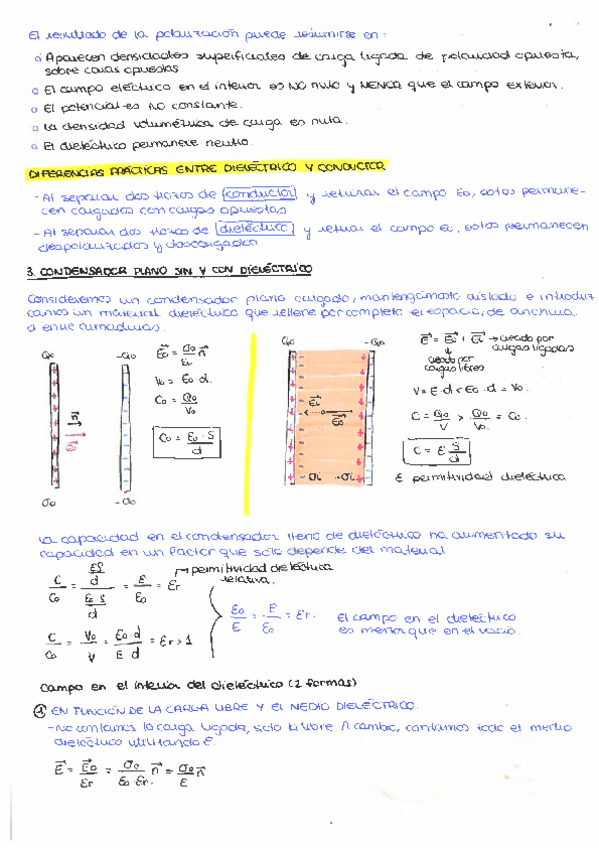 El resultado de la polarización puede resumirse en:
o Aparecen densidades superficiales de carga ligada de polaridad opuesta,
sobre caras opuestas
o El campo eléctrico en el interior es NO nulo y MENOR que el campo exterior.
o El potencial es NO constante.
o La densidad volumétrica de carga es nula.
o El dieléctrico permanece neutro.
DIFERENCIAS PRÁCTICAS ENTRE DIELÉCTRICO Y CONDUCTOR
- Al separar dos trozos de conductor y retirar el campo E0, estos permane-
cen cargados con cargas opuestas
- Al separar dos trozos de dieléctrico y retirar el campo E0, estos permanecen
despolarizados y descargados
3. CONDENSADOR PLANO SIN Y CON DIELÉCTRICO
Consideremos un condensador plano cargado, mantengámoslo aislado e introduz
camos un material dieléctrico que rellene por completo el espacio, de anchura
d entre armaduras.
Q0 -Q0
E⃗0 = σ0/ε0 n⃗
V0 = E0·d.
C0 = Q0/V0
C0 = ε0·S/d
n⃗
E⃗0
σ0 -σ0
Q0 -Q0
E⃗i
E⃗0
-σi +σi
E⃗ = E⃗0 + E⃗i → creado por cargas ligadas
creado por cargas libres
V = E·d < E0·d = V0.
C = Q0/V > Q0/V0 = C0.
C = ε S/d
ε permitividad dieléctrica
La capacidad en el condensador lleno de dieléctrico ha aumentado su
capacidad en un factor que solo depende del material.
C/C0 = (εS/d)/(ε0·S/d) = ε/ε0 = εr → permitividad dieléctrica relativa.
C/C0 = V0/V = E0·d/E·d = εr > 1
E0/E = ε/ε0 = εr.
El campo en el dieléctrico
es menor que en el vacío.
Campo en el interior del dieléctrico (2 formas)
1 EN FUNCIÓN DE LA CARGA LIBRE Y EL MEDIO DIELÉCTRICO.
- No contamos la carga ligada, solo la libre. A cambio, contamos todo el medio
dieléctrico utilizando ε.
E⃗ = E⃗0/εr = σ0/ε0·εr n⃗ = σ0/ε n⃗